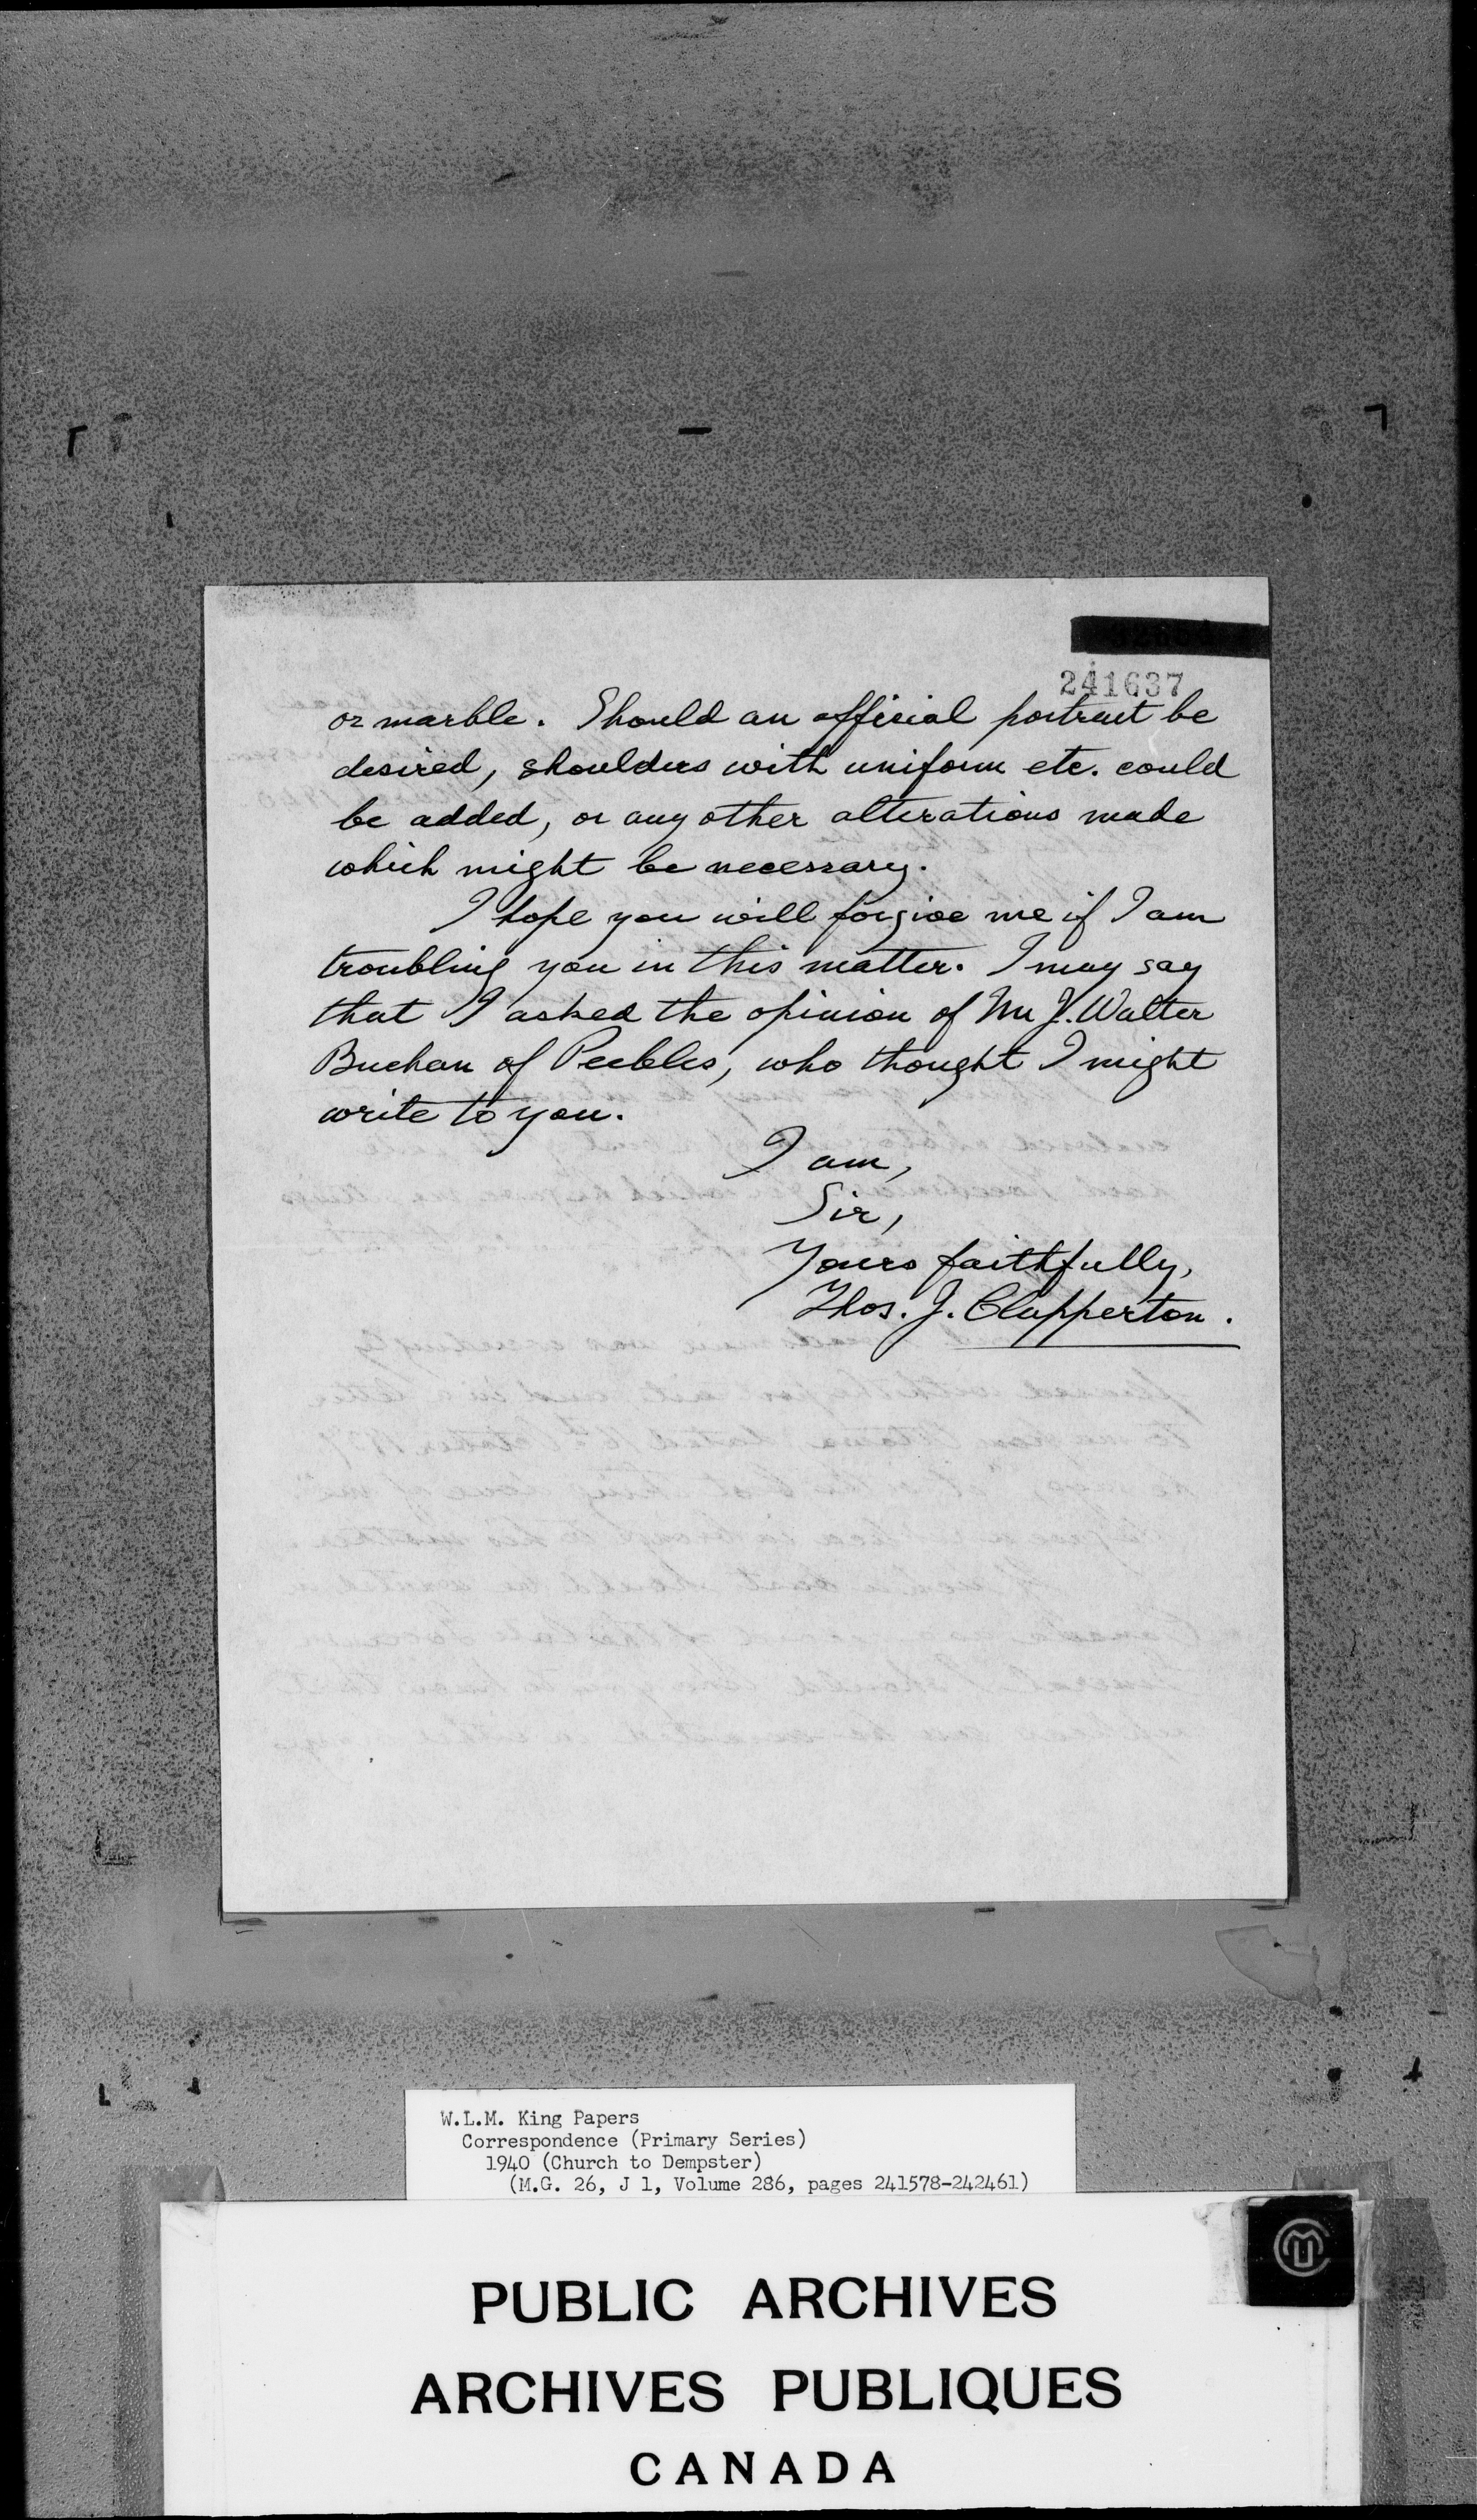 241637
or marble. Should an official portrait be
desired, shoulders with uniform etc. could
be added, or any other alterations made
which might be necessary.
I hope you will forgive me if I am
troubling you in this matter. I may say
that I asked the opinion of Mr J. Walter
Buchan of Peebles, who thought I might
write to you.
I am,
Sir,
Yours faithfully,
Thos. J. Clapperton.
W.L.M. King Papers
Correspondence (Primary Series)
1940 (Church to Dempster)
(M.G. 26, J 1, Volume 286, pages 241578-242461)
PUBLIC ARCHIVES
ARCHIVES PUBLIQUES
CANADA